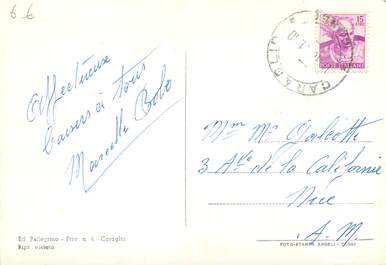 6 6
Affectueux
baisers à tous
Marcelle Bobo
15
POSTE ITALIANE
Mme Mr
3 Ave de la Californie
Nice
A.M.
Ed. Pellegrino - Priv. n. 4 - Caraglio
Ripr. vietata
FOTO-STAMPA ANGELI - TERNI